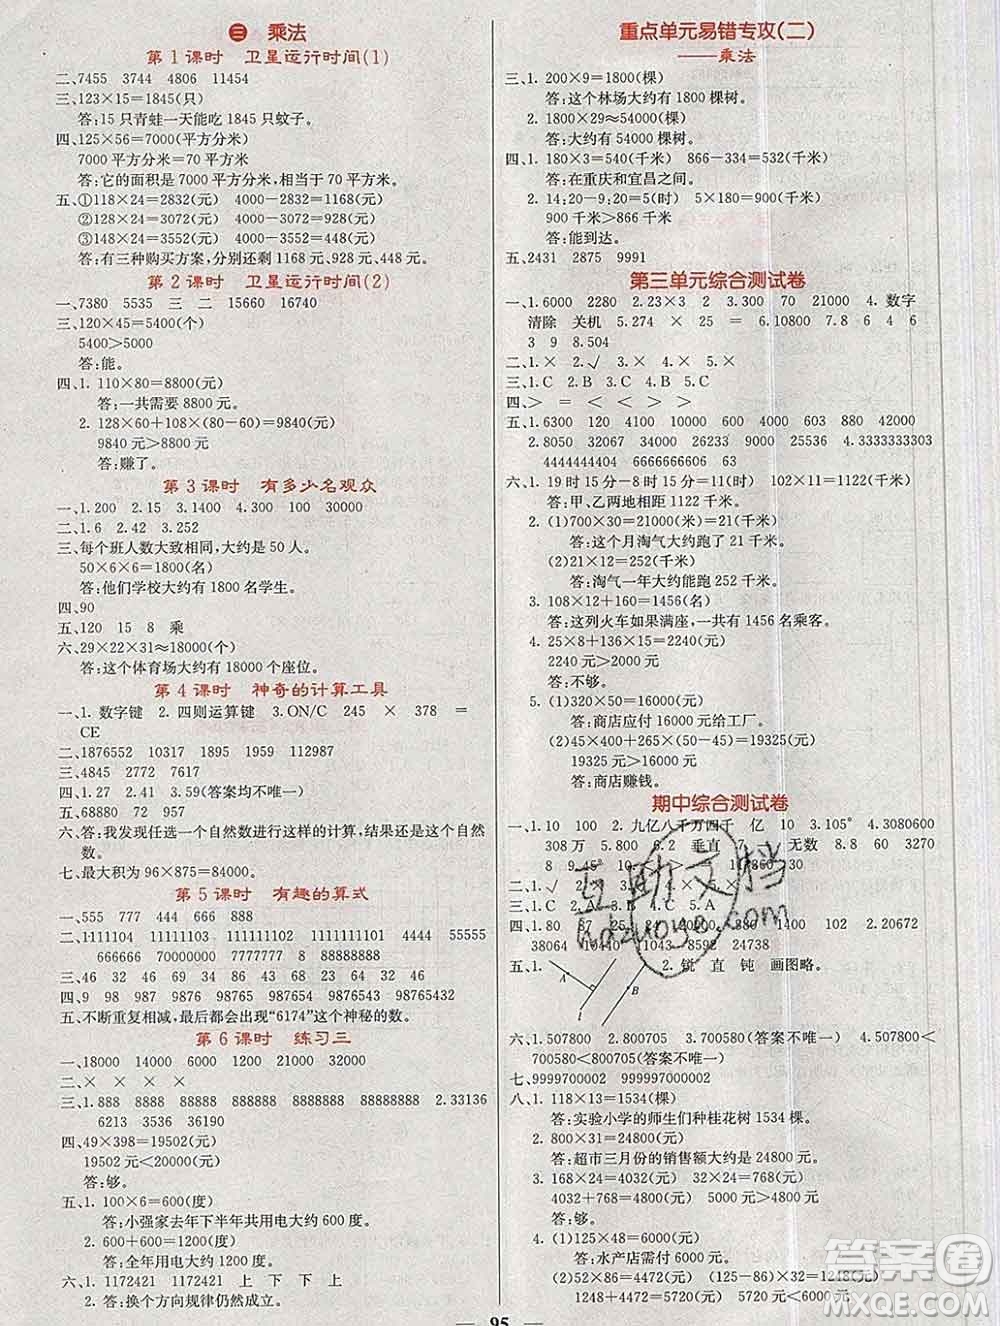 三 乘法
第1课时 卫星运行时间(1)
二、7455 3744 4806 11454
三、123×15=1845(只)
答:15只青蛙一天能吃1845只蚊子。
四、125×56=7000(平方分米)
7000平方分米=70平方米
答:它的面积是7000平方分米,合70平方米。
五、①118×24=2832(元) 4000-2832=1168(元)
②128×24=3072(元) 4000-3072=928(元)
③148×24=3552(元) 4000-3552=448(元)
答:有三种购买方案,分别还剩1168元、928元、448元。
第2课时 卫星运行时间(2)
一、7380 5535 三 二 15660 16740
三、120×45=5400(个)
5400>5000
答:能。
四、1. 110×80=8800(元)
答:一共需要8800元。
2. 128×60+108×(80-60)=9840(元)
9840元>8800元
答:赚了。
第3课时 有多少名观众
一、1.200 2.15 3.1400 4.300 100 30000
二、1.6 2.42 3.44
三、每个班人数大致相同,大约是50人。
50×6×6=1800(名)
答:他们学校大约有1800名学生。
四、90
五、120 15 8 乘
六、29×22×31≈18000(个)
答:这个体育场大约有18000个座位。
第4课时 神奇的计算工具
一、1.数字键 2.四则运算键 3.ON/C 245 × 378 =
CE
二、1876552 10317 1895 1960 112987
三、4845 2772 7617
四、1.27 2.41 3.59(答案均不唯一)
五、68880 72 957
六、答:我发现任选一个自然数进行这样的计算,结果还是这个自然
数。
七、最大积为96×875=84000。
第5课时 有趣的算式
一、555 777 444 666 888
二、1111104 11111103 111111102 1111111101 4444 55555
666666 70000000 7777777 8 88888888
三、46 32 46 23 68 43 86 34 69 32 96 23
四、9 98 987 9876 98765 9 98 987 9876 98765432
五、不断重复相减,最后都会出现“6174”这个神秘的数。
第6课时 练习三
一、18000 14000 9000 12000 32000 18000
二、× × × ×
三、1.888 8888 88888 888888 8888888 88888888 2.33136
6213 3535 9438 6000
四、49×398=19502(元)
19502元<20000(元)
答:够。
五、1. 100×6=600(度)
答:小强家去年下半年共用电大约600度。
2. 600+600=1200(度)
答:全年用电大约1200度。
六、1. 1172421 1172421 上 下 下 上
2. 答:换个方向规律仍然成立。
重点单元易错专攻(二)
——乘法
三、1. 200×9=1800(棵)
答:这个林场大约有1800棵树。
2. 1800×29≈54000(棵)
答:大约有54000棵树。
四、1. 180×3=540(千米) 866-334=532(千米)
答:在重庆和宜昌之间。
2. 14:20-9:20=5(时) 5×180=900(千米)
900千米>866千米
答:能到达。
五、2431 2875 9991
第三单元综合测试卷
一、1.6000 2280 2.23×3 2 3.300 70 21000 4.数字
清除 关机 5.274 × 25 = 6.10800 7.8 6 4 6
3 9 8.504
二、1.× 2.√ 3.× 4.× 5.×
三、1.C 2.B 3.A 4.C 5.C
四、> = < < > >
五、1.6300 120 4100 10000 600 4000 603 880 42000
2.8050 32067 34000 9000 25536 4.3333333303
44444444404 66666666606
六、1. 19时15分-8时15分=11(时) 102×11=1122(千米)
答:甲、乙两地相距1122千米。
2. (1)700×30=21000(米)=21(千米)
答:这个月淘气大约跑了21千米。
(2)21×12=252(千米)
答:淘气一年大约能跑252千米。
3. 108×12+160=1456(名)
答:这列火车如果满座,一共有1456名乘客。
4. 25×8+136×15=2240(元)
2240元>2000元
答:不够。
5. (1)320×50=16000(元)
答:商店应付16000元给工厂。
(2)45×400+265×(50-45)=19325(元)
19325元>16000元
答:商店赚钱。
期中综合测试卷
一、1.10 100 2.九亿八千万四千 亿 10 3.105° 4.3080500
308万 5.800 6.2 垂直 7.一 无数 8.180 360
三、1.C 2.A 3.B 4.C 5.A
38064 10440 1043 8592 24738
2.锐 直 钝 画图略。
A
B
六、1.507800 2.800705 3.700580(答案不唯一) 4.507800<
700580<800705(答案不唯一)
七、9999700002 999997000002
八、1. 118×13=1534(棵)
答:实验小学的师生们种桂花树1534棵。
2. 800×31=24800(元)
答:超市三月份的销售额大约是24800元。
3. 168×24=4032(元) 32×25=800(元)
4032+800=4832(元) 5000元>4832元
答:够。
4. (1)125×48=6000(元)
答:水产店需付6000元。
(2)52×86=4472(元) (125-86)×32=1248(元)
1248+4472=5720(元) 5720元<6000元
95
互助文档
hdzuoye.com
答案圈
MXQE.COM